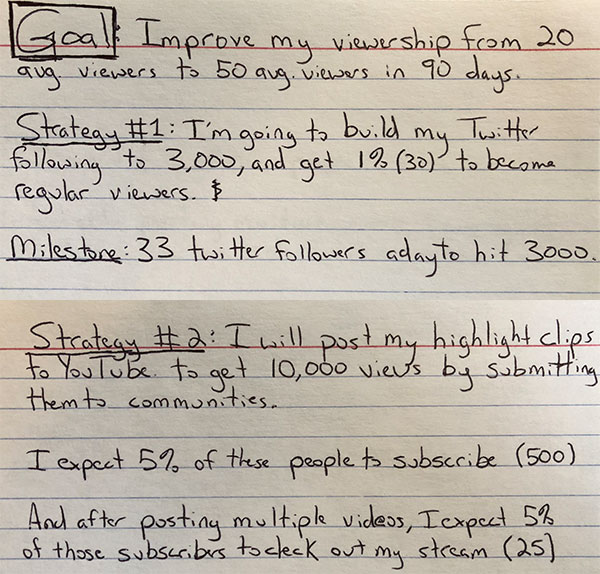 Goal: Improve my viewership from 20
avg. viewers to 50 avg. viewers in 90 days.
Strategy #1: I'm going to build my Twitter
following to 3,000, and get 1% (30) to become
regular viewers.
Milestone: 33 twitter followers a day to hit 3000.
Strategy #2: I will post my highlight clips
to YouTube to get 10,000 views by submitting
them to communities.
I expect 5% of these people to subscribe (500)
And after posting multiple videos, I expect 5%
of those subscribers to check out my stream (25)